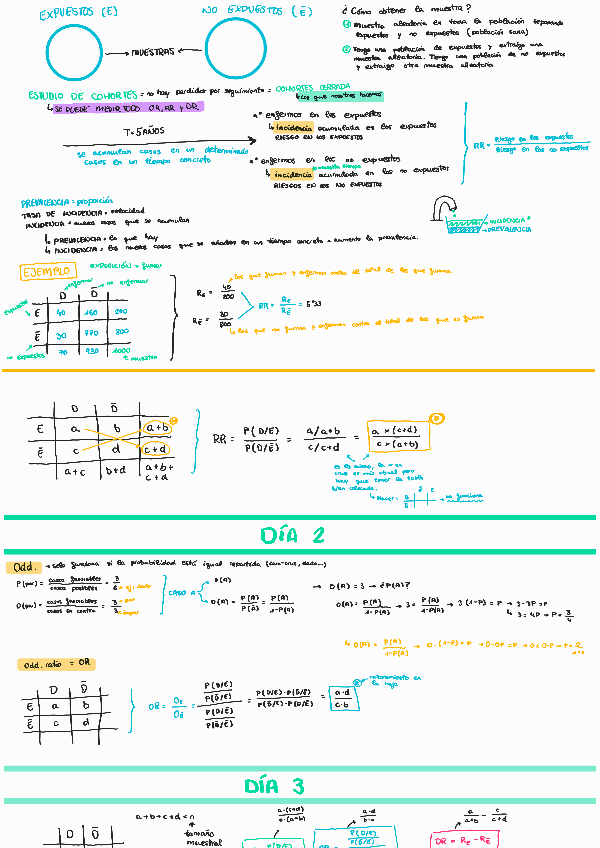 EXPUESTOS (E)
NO EXPUESTOS (Ē)
← MUESTRAS →
¿Cómo obtener la muestra?
① Muestra aleatoria en toda la población separando
expuestos y no expuestos (población sana)
② Tengo una población de expuestos y extraigo una
muestra aleatoria. Tengo una población de no expuestos
y extraigo otra muestra aleatoria
ESTUDIO DE COHORTES = no hay perdidas por seguimiento = COHORTES CERRADA
↳ SE PUEDE MEDIR TODO OR, RR y DR
↳ los que nosotros hacemos
T = 5 AÑOS
se acumulan casos en un determinado
casos en un tiempo concreto
nº enfermos en los expuestos
↳ incidencia acumulada en los expuestos
RIESGO EN LOS EXPUESTOS
nº enfermos en los no expuestos
↳ incidencia acumulada en los no expuestos
RIESGOS EN LOS NO EXPUESTOS
RR = Riesgo en los expuestos / Riesgo en los no expuestos
PREVALENCIA = proporción
TASA DE INCIDENCIA = velocidad
INCIDENCIA = nuevos casos que se acumulan
↳ PREVALENCIA = lo que hay
↳ INCIDENCIA = los nuevos casos que se añaden en un tiempo concreto = aumenta la prevalencia.
INCIDENCIA
PREVALENCIA
EJEMPLO
EXPOSICIÓN = fumar
enfermar
no enfermar
D D̄
expuestos E 40 160 200
no expuestos Ē 30 770 800
70 930 1000
muestra
R_E = 40/200
→ los que fuman y enferman entre el total de los que fuman
RR = R_E / R_Ē = 5'33
R_Ē = 30/800
↳ los que no fuman y enferman entre el total de los que no fuman
D D̄
E a b a+b
Ē c d c+d
a+c b+d a+b+c+d
RR = P(D/E) / P(D/Ē) = a/a+b / c/c+d = a×(c+d) / c×(a+b)
es lo mismo, la
que es más visual pero
hay que tener la tabla
bien colocada.
↳ Hacer: E Ē D D̄ → no funciona
DÍA 2
Odd. → solo funciona si la probabilidad está igual repartida (cara-cruz, dado...)
P(par) = casos favorables / casos posibles = 3/6 → ej. dado
O(par) = casos favorables / casos en contra = 3/3 → par → impar
CASO A
O(A)
O(A) = P(A)/P(Ā) = P(A)/1-P(A)
→ O(A) = 3 → ¿P(A)?
O(A) = P(A)/1-P(A) → 3 = P(A)/1-P(A) → 3·(1-P) = P → 3-3P = P
↳ 3 = 4P → P = 3/4
↳ O(A) = P(A)/1-P(A) → O·(1-P) = P → O-OP = P → O = O·P + P
Odd. ratio = OR
D D̄
E a b
Ē c d
OR = O_E / O_Ē = P(D/E)/P(D̄/E) / P(D/Ē)/P(D̄/Ē) = P(D/E)·P(D̄/Ē) / P(D̄/E)·P(D/Ē) = a·d / c·b
DÍA 3
D D̄
a+b+c+d = n
tamaño
muestral
a·(c+d) / c·(a+b)
a·d / b·c
a/a+b - c/c+d
DR = R_E - R_Ē